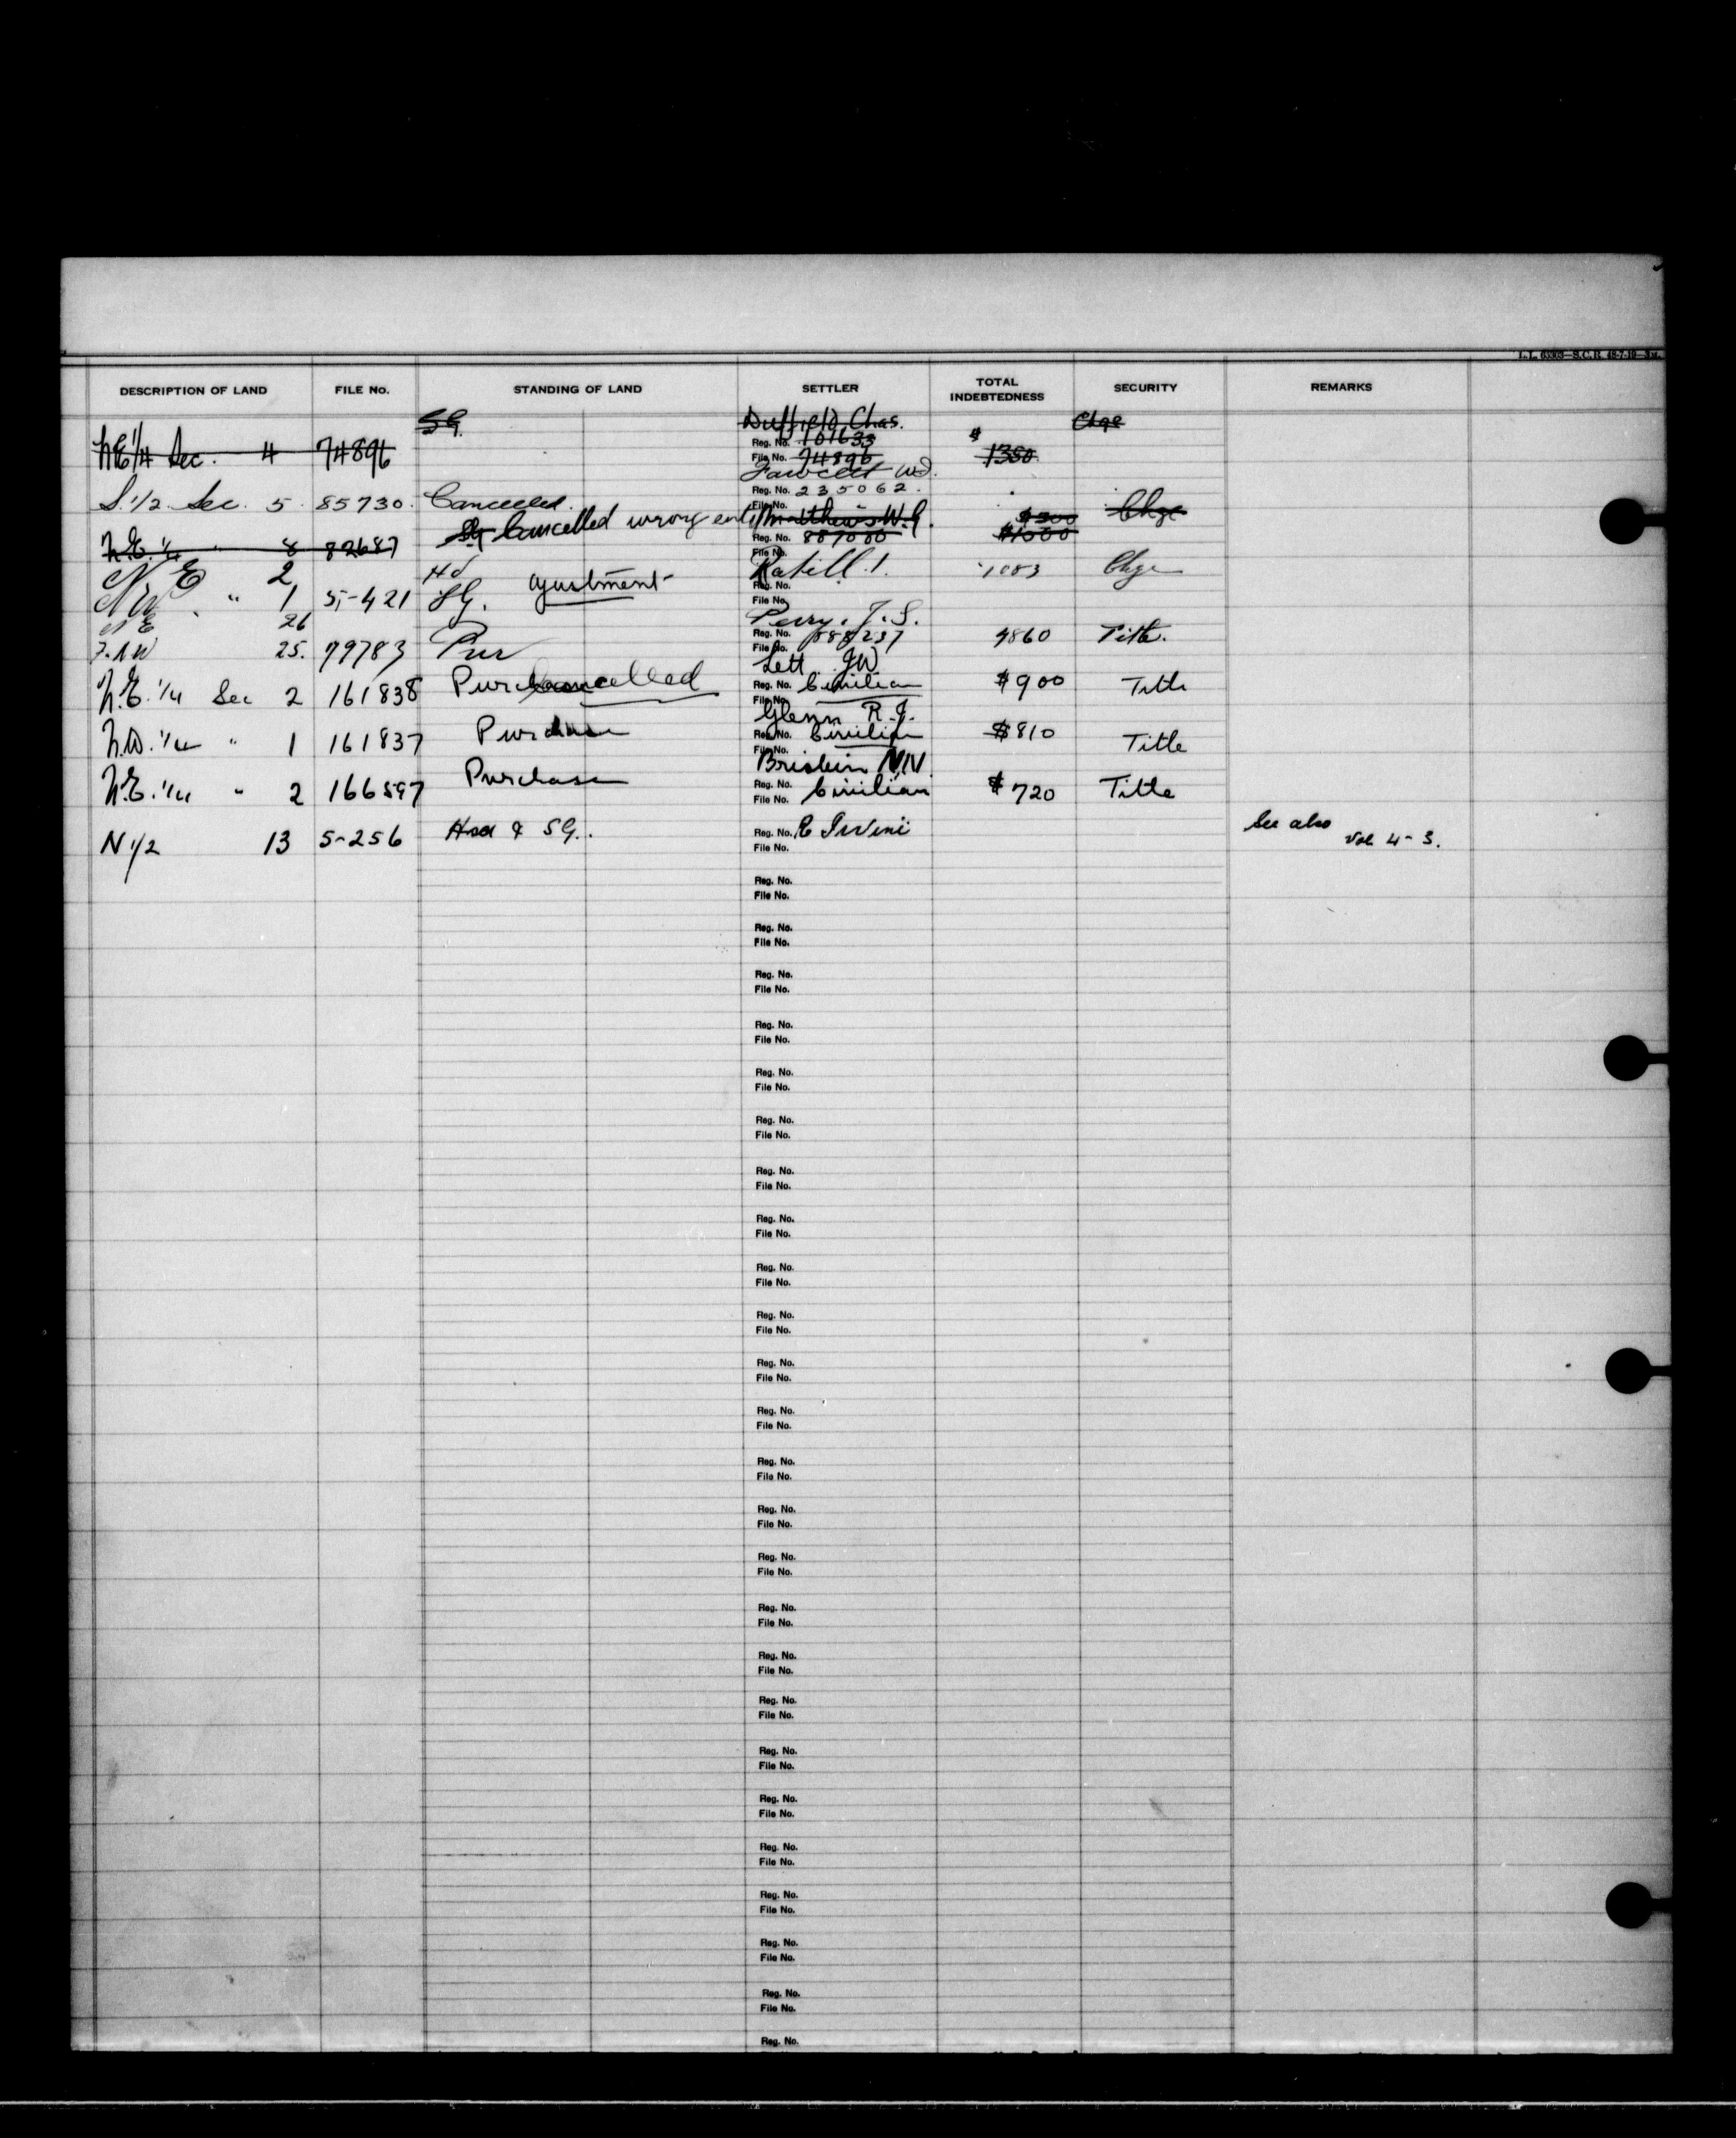 L.L. 63303—S.C.R. 48-7-19—3M.
DESCRIPTION OF LAND FILE No. STANDING OF LAND SETTLER TOTAL INDEBTEDNESS SECURITY REMARKS
SG. Duffield Chas. Chge
N.E 1/4 Sec. 4 74896 Reg. No. 101633 $ 1350
File No. 74896
Fawcett
S. 1/2 Sec. 5 85730 Cancelled. Reg. No. 235062.
File No.
SG Cancelled wrong entry Matthews W.G. $300 Chge
N.E. 1/4 " 8 82687 Reg. No. 887080 $1000
File No.
N E 2 Hd Ratill 1083 Chge
N W " 1 5-421 SG. ajustment Reg. No.
File No.
N E 26 Perry. J. S.
F. N W 25. 79783 Pur Reg. No. 888237 4860 Title.
File No.
Lett JW
N.E. 1/4 Sec 2 161838 Purchase Cancelled Reg. No. Civilian $900 Title
File No.
Glenn R. J.
N.W. 1/4 " 1 161837 Purchase Reg. No. Civilian $810 Title
File No.
Briskin
N.E. 1/4 " 2 166597 Purchase Reg. No. Civilian $720 Title
File No.
N 1/2 13 5-256 Hsd & SG. Reg. No. Irvine See also
File No. Vol 4-3.
Reg. No.
File No.
Reg. No.
File No.
Reg. No.
File No.
Reg. No.
File No.
Reg. No.
File No.
Reg. No.
File No.
Reg. No.
File No.
Reg. No.
File No.
Reg. No.
File No.
Reg. No.
File No.
Reg. No.
File No.
Reg. No.
File No.
Reg. No.
File No.
Reg. No.
File No.
Reg. No.
File No.
Reg. No.
File No.
Reg. No.
File No.
Reg. No.
File No.
Reg. No.
File No.
Reg. No.
File No.
Reg. No.
File No.
Reg. No.
File No.
Reg. No.
File No.
Reg. No.
File No.
Reg. No.